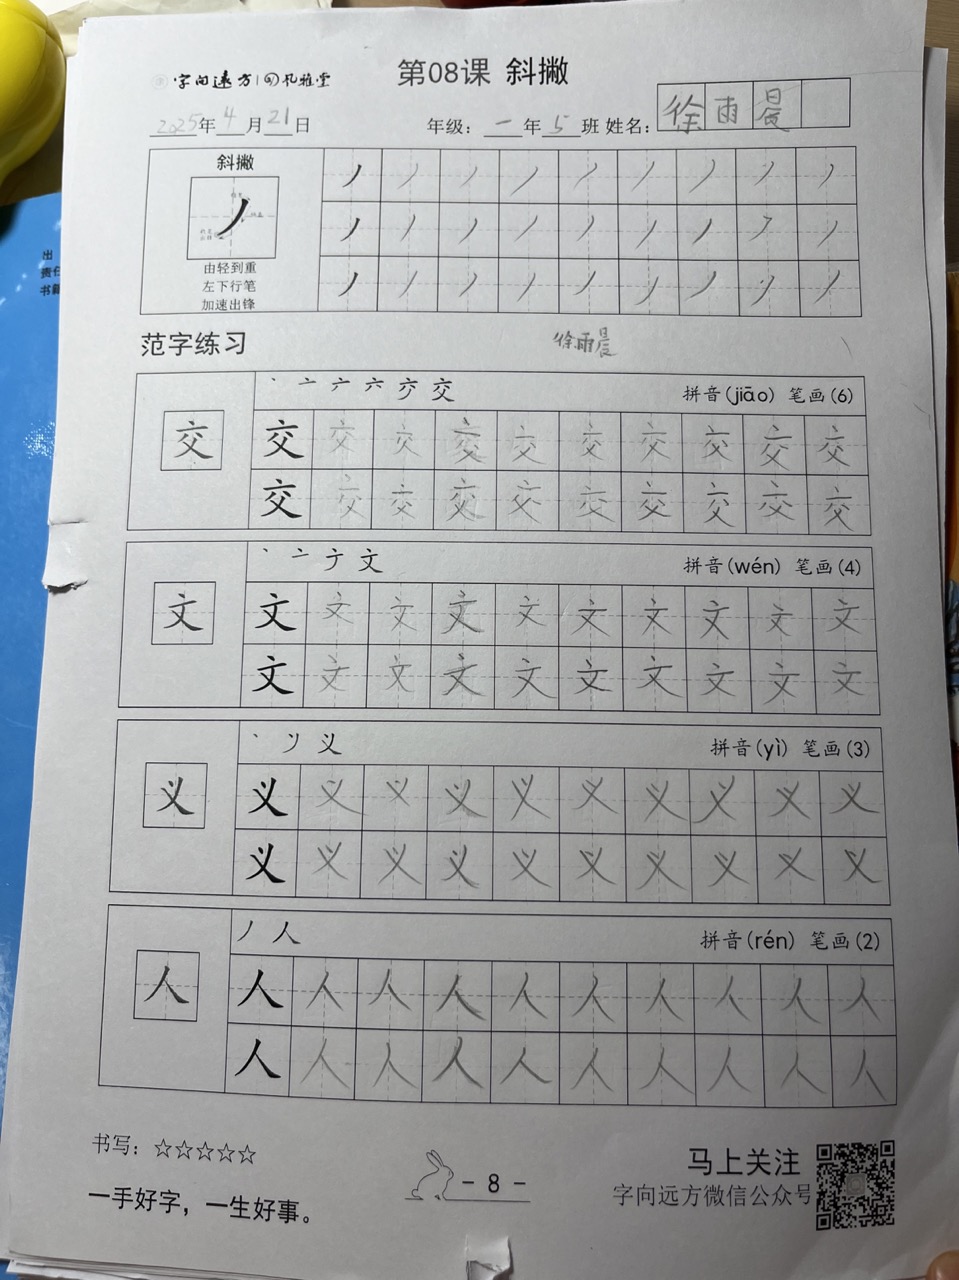 字向远方 凡雅堂
第08课 斜撇
2025年4月21日 年级：一年5班 姓名：徐雨晨
斜撇
由轻到重
左下行笔
加速出锋
范字练习
徐雨晨
丶 亠 六 六 交 交 拼音(jiāo) 笔画(6)
交 交 交 交 交 交 交 交 交 交 交
交 交 交 交 交 交 交 交 交 交
丶 亠 ナ 文 拼音(wén) 笔画(4)
文 文 文 文 文 文 文 文 文 文 文
文 文 文 文 文 文 文 文 文 文
丶 ソ 义 拼音(yì) 笔画(3)
义 义 义 义 义 义 义 义 义 义 义
义 义 义 义 义 义 义 义 义 义
丿 人 拼音(rén) 笔画(2)
人 人 人 人 人 人 人 人 人 人 人
人 人 人 人 人 人 人 人 人 人
书写：☆☆☆☆☆
一手好字，一生好事。
- 8 -
马上关注
字向远方微信公众号
出
责任
书籍